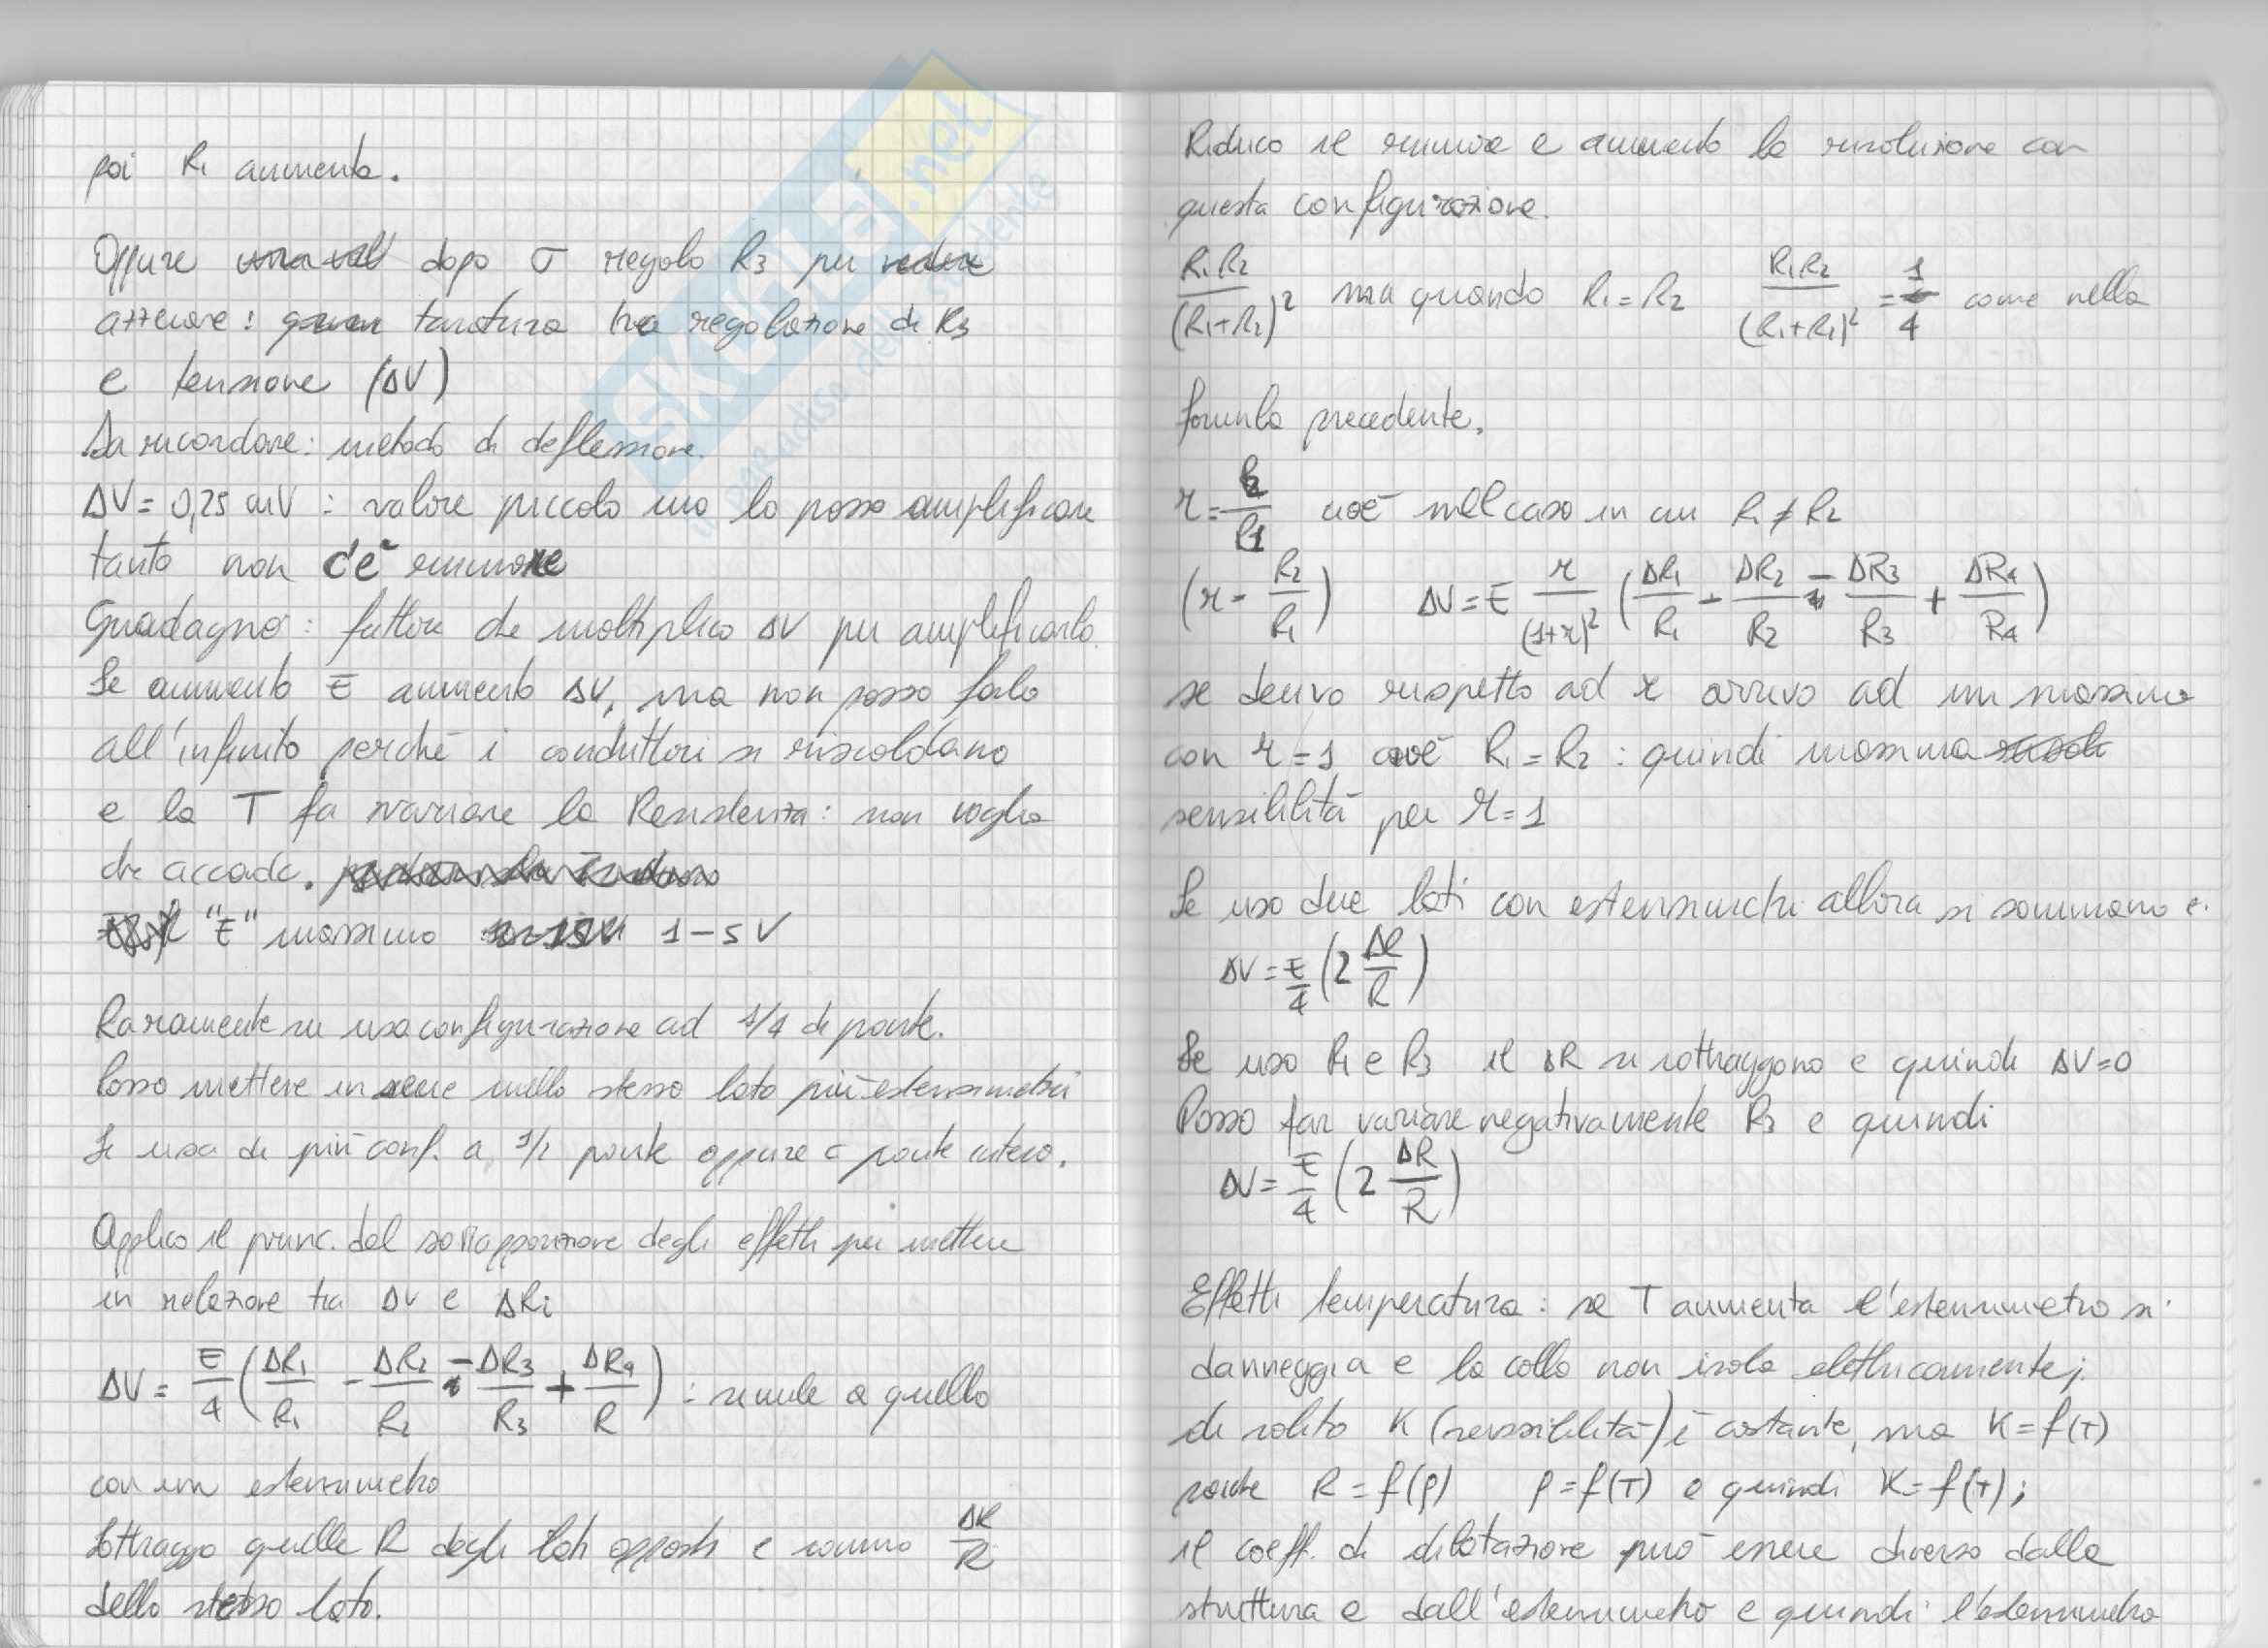 poi R1 aumenta.
Oppure dopo σ regolo R3 per
azzerare: taratura tra regolazione di R3
e tensione (ΔV)
Da ricordare: metodo di deflessione.
ΔV = 0,25 mV : valore piccolo ma lo posso amplificare
tanto non c'è rumore
Guadagno: fattore che moltiplico ΔV per amplificarlo.
Se aumento E aumento ΔV, ma non posso farlo
all'infinito perché i conduttori si riscaldano
e la T fa variare la Resistenza: non voglio
che accada.
"E" massimo 1-5 V
Raramente si usa configurazione ad 1/4 di ponte.
Posso mettere in serie nello stesso lato più estensimetri
Si usa di più conf. a 1/2 ponte oppure a ponte intero.
Applico il princ. del sovrapposizione degli effetti per mettere
in relazione tra ΔV e ΔRi
ΔV = E/4 (ΔR1/R1 - ΔR2/R2 - ΔR3/R3 + ΔR4/R) : simile a quello
con un estensimetro
Sottraggo quelle R degli lati opposti e sommo ΔR/R
dello stesso lato.
Riduco il rumore e aumento la risoluzione con
questa configurazione.
R1R2/(R1+R2)² ma quando R1=R2 R1R2/(R1+R1)² = 1/4 come nella
formula precedente.
r = R2/R1 cioè nel caso in cui R1 ≠ R2
(r = R2/R1) ΔV = E r/(1+r)² (ΔR1/R1 - ΔR2/R2 - ΔR3/R3 + ΔR4/R4)
se derivo rispetto ad r arrivo ad un massimo
con r=1 cioè R1=R2 : quindi massima
sensibilità per r=1
Se uso due lati con estensimetri allora si sommano e
ΔV = E/4 (2 ΔR/R)
Se uso R1 e R3 il ΔR si sottraggono e quindi ΔV=0
Posso far variare negativamente R3 e quindi
ΔV = E/4 (2 ΔR/R)
Effetti temperatura: se T aumenta l'estensimetro si
danneggia e la colla non isola elettricamente;
di solito K (sensibilità) è costante, ma K=f(T)
poiché R=f(ρ) ρ=f(T) e quindi K=f(T);
il coeff. di dilatazione può essere diverso dalla
struttura e dall'estensimetro e quindi l'estensimetro
SKUOLA.net
il paradiso dello studente